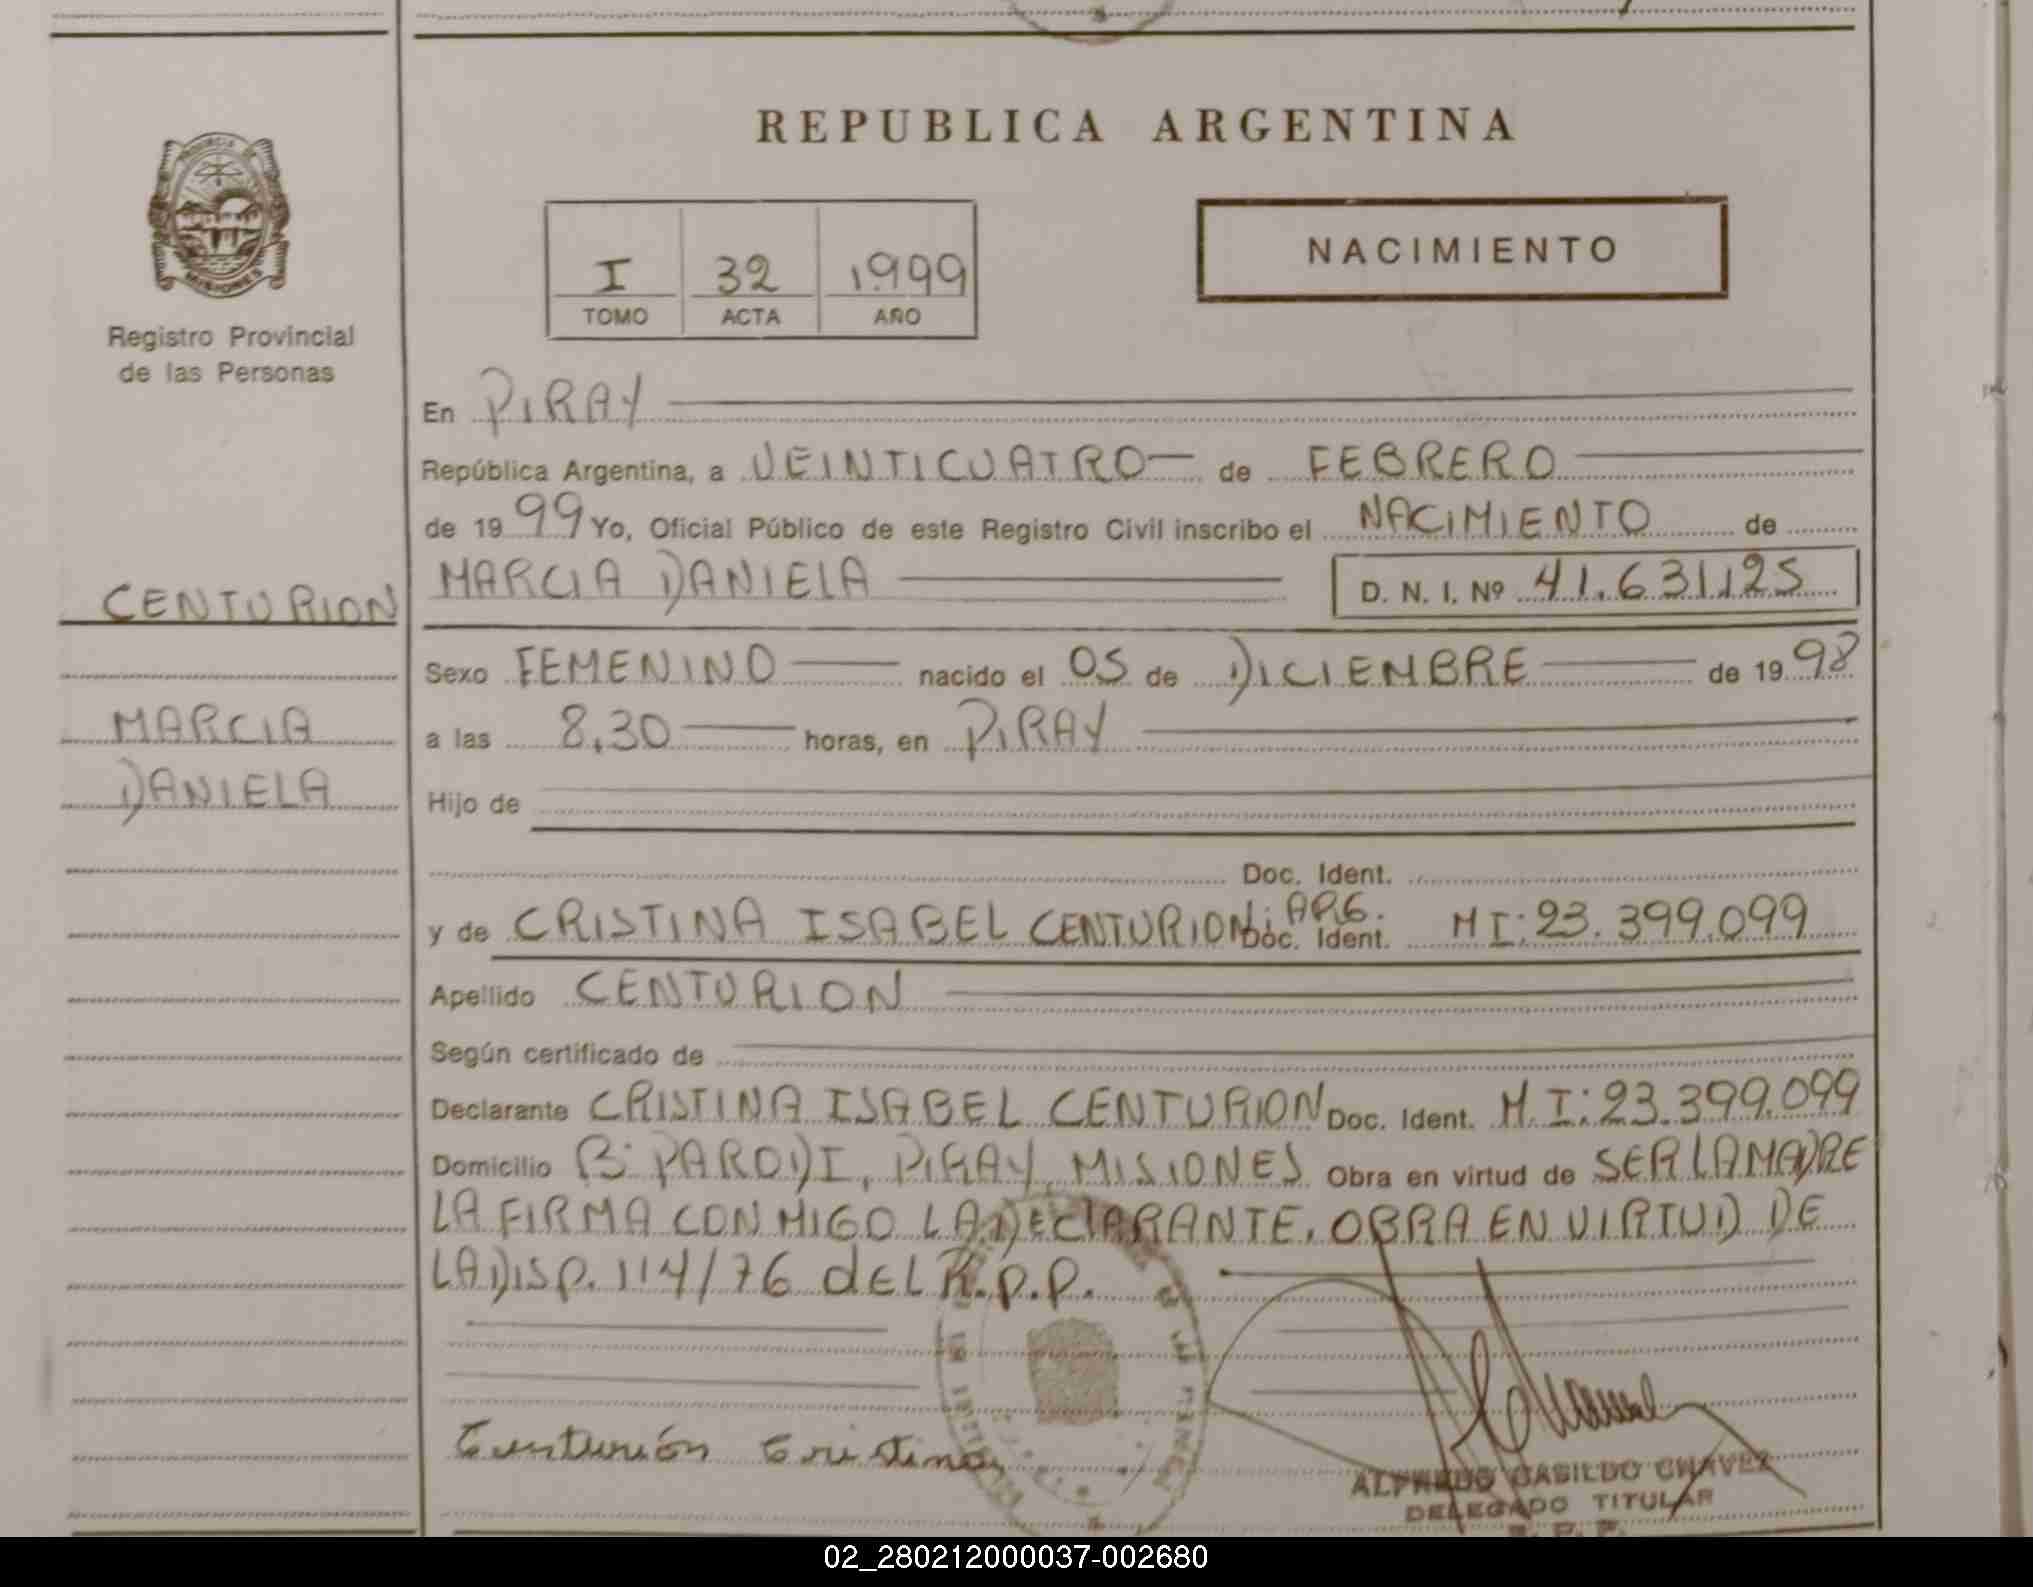 REPUBLICA ARGENTINA
PROVINCIA DE
MISIONES
Registro Provincial
de las Personas
I 32 1.999
TOMO ACTA AÑO
NACIMIENTO
En PIRAY
República Argentina, a VEINTICUATRO de FEBRERO
de 1999 Yo, Oficial Público de este Registro Civil inscribo el NACIMIENTO de
MARCIA DANIELA D. N. I. Nº 41.631.125
CENTURION
Sexo FEMENINO nacido el 05 de DICIEMBRE de 1998
MARCIA
a las 8,30 horas, en PIRAY
DANIELA
Hijo de
Doc. Ident.
y de CRISTINA ISABEL CENTURION; ARG. Doc. Ident. M I: 23.399.099
Apellido CENTURION
Según certificado de
Declarante CRISTINA ISABEL CENTURION Doc. Ident. M.I: 23.399.099
Domicilio Bº PARODI, PIRAY, MISIONES Obra en virtud de SER LA MADRE
LA FIRMA CONMIGO LA DECLARANTE. OBRA EN VIRTUD DE
LA DISP. 114/76 dEL R.P.P.
Centurión Cristina
ALFREDO CASILDO CHAVEZ
DELEGADO TITULAR
R. P. P.
02_280212000037-002680